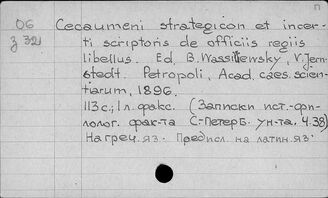 п
06 Cecaumeni strategicon et incer-
з 321 ti scriptoris de officiis regiis
libellus. Ed. B. Wassiliewsky, V. Jern-
stedt. Petropoli, Acad. caes. scien-
tiarum, 1896.
113 с.; 1 л. факс. (Записки ист.-фи-
лолог. фак-та С-Петерб. ун-та. Ч. 38)
На греч. яз. Предисл. на латин. яз.